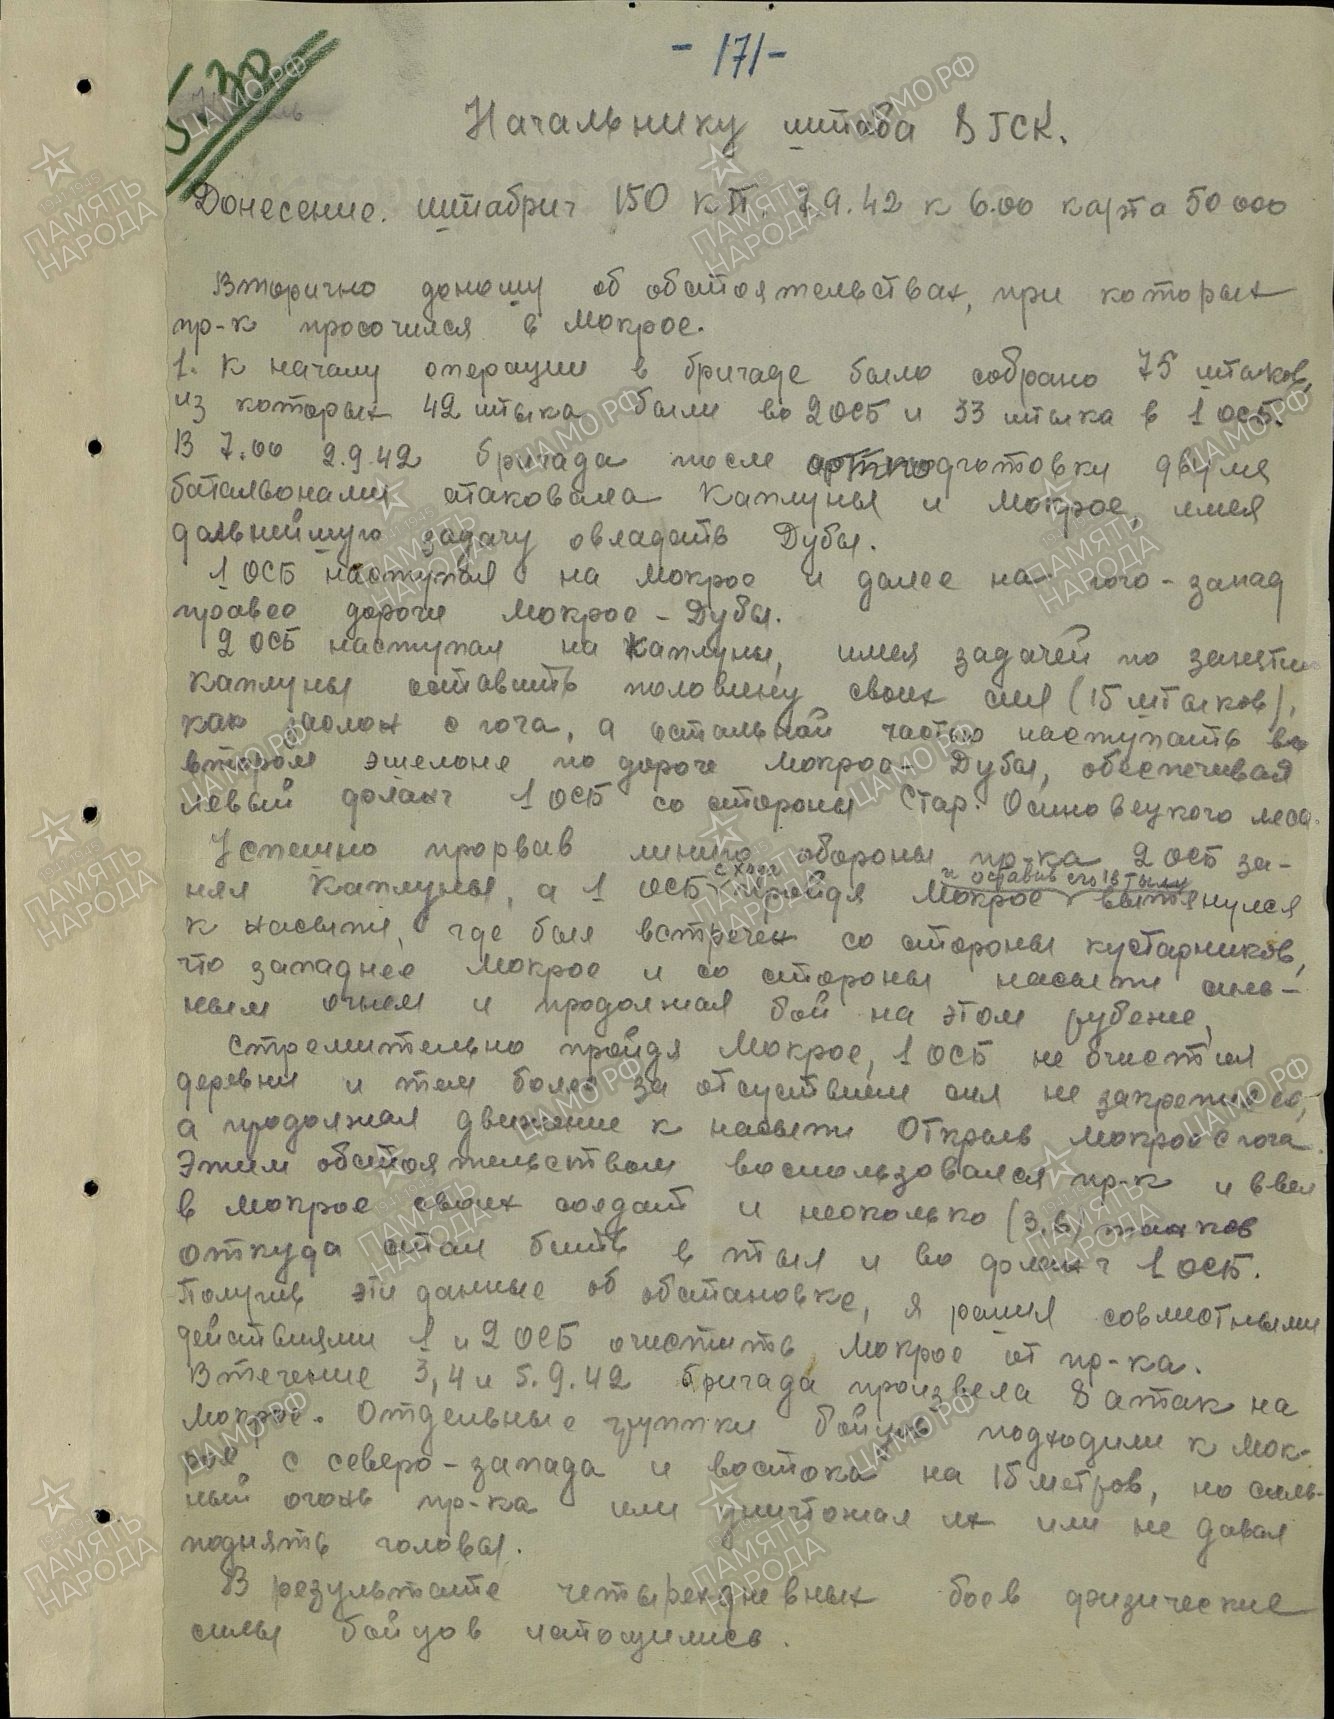 - 171 -
5.30
Начальнику штаба 8 ГСК.
Донесение. штабриг 150 КП. 7.9.42 к 6.00 карта 50 000
Вторично доношу об обстоятельствах, при которых
пр-к просочился в Мокрое.
1. К началу операции в бригаде было собрано 75 штыков,
из которых 42 штыка были во 2 ОСБ и 33 штыка в 1 ОСБ.
В 7.00 2.9.42 бригада после артподготовки двумя
батальонами атаковала Каплуны и Мокрое, имея
дальнейшую задачу овладеть Дубы.
1 ОСБ наступал на Мокрое и далее на юго-запад
правее дороги Мокрое - Дубы.
2 ОСБ наступал на Каплуны, имея задачей по занятии
Каплуны оставить половину своих сил (15 штыков),
как заслон с юга, а остальной частью наступать во
втором эшелоне по дороге Мокрое - Дубы, обеспечивая
левый фланг 1 ОСБ со стороны Стар. Осиновецкого леса.
Успешно прорвав линию обороны пр-ка 2 ОСБ за-
с хода и оставив его в тылу
нял Каплуны, а 1 ОСБ пройдя Мокрое вытянулся
к насыпи, где был встречен со стороны кустарников,
что западнее Мокрое и со стороны насыпи силь-
ным огнем и продолжал бой на этом рубеже,
Стремительно пройдя Мокрое, 1 ОСБ не очистил
деревни и тем более за отсутствием сил не закрепил ее,
а продолжал движение к насыпи открыв Мокрое с юга.
Этим обстоятельством воспользовался пр-к и ввел
в Мокрое своих солдат и несколько (3.6) танков
откуда стал бить в тыл и во фланг 1 ОСБ.
Получив эти данные об обстановке, я решил совместными
действиями 1 и 2 ОСБ очистить Мокрое от пр-ка.
В течение 3, 4 и 5.9.42 бригада произвела 8 атак на
Мокрое. Отдельные группки бойцов подходили к Мок-
рое с северо-запада и востока на 15 метров, но силь-
ный огонь пр-ка или уничтожал их или не давал
поднять головы.
В результате четырехдневных боев физические
силы бойцов истощились.
ПАМЯТЬ НАРОДА
ЦАМО РФ